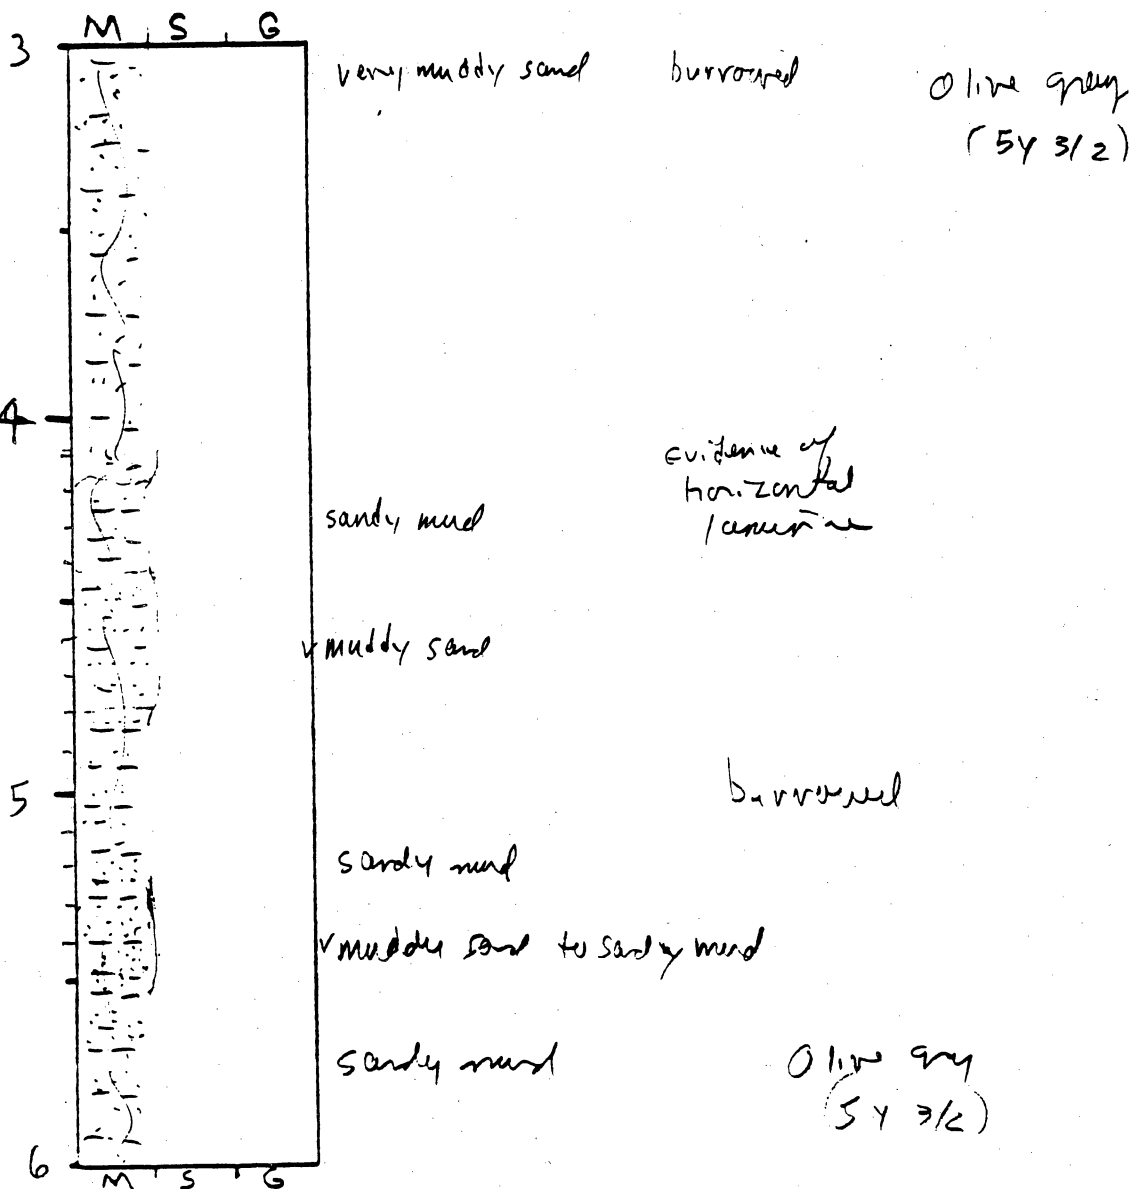 M S G
3
very muddy sand burrowed Olive gray
(5Y 3/2)
4
Evidence of
horizontal
sandy mud
v muddy sand
5
burrowed
sandy mud
v muddy sand to sandy mud
sandy mud Olive gray
(5Y 3/2)
6
M S G